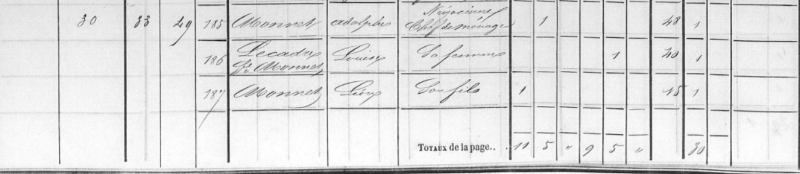 30 33 49 185 Monnet Adolphe Négociant Chef de ménage 1 48 1
186 Lecadre fe Monnet Louise Sa femme 1 40 1
187 Monnet Léon Son fils 1 15 1
TOTAUX de la page.. 10 5 " 9 5 " 30